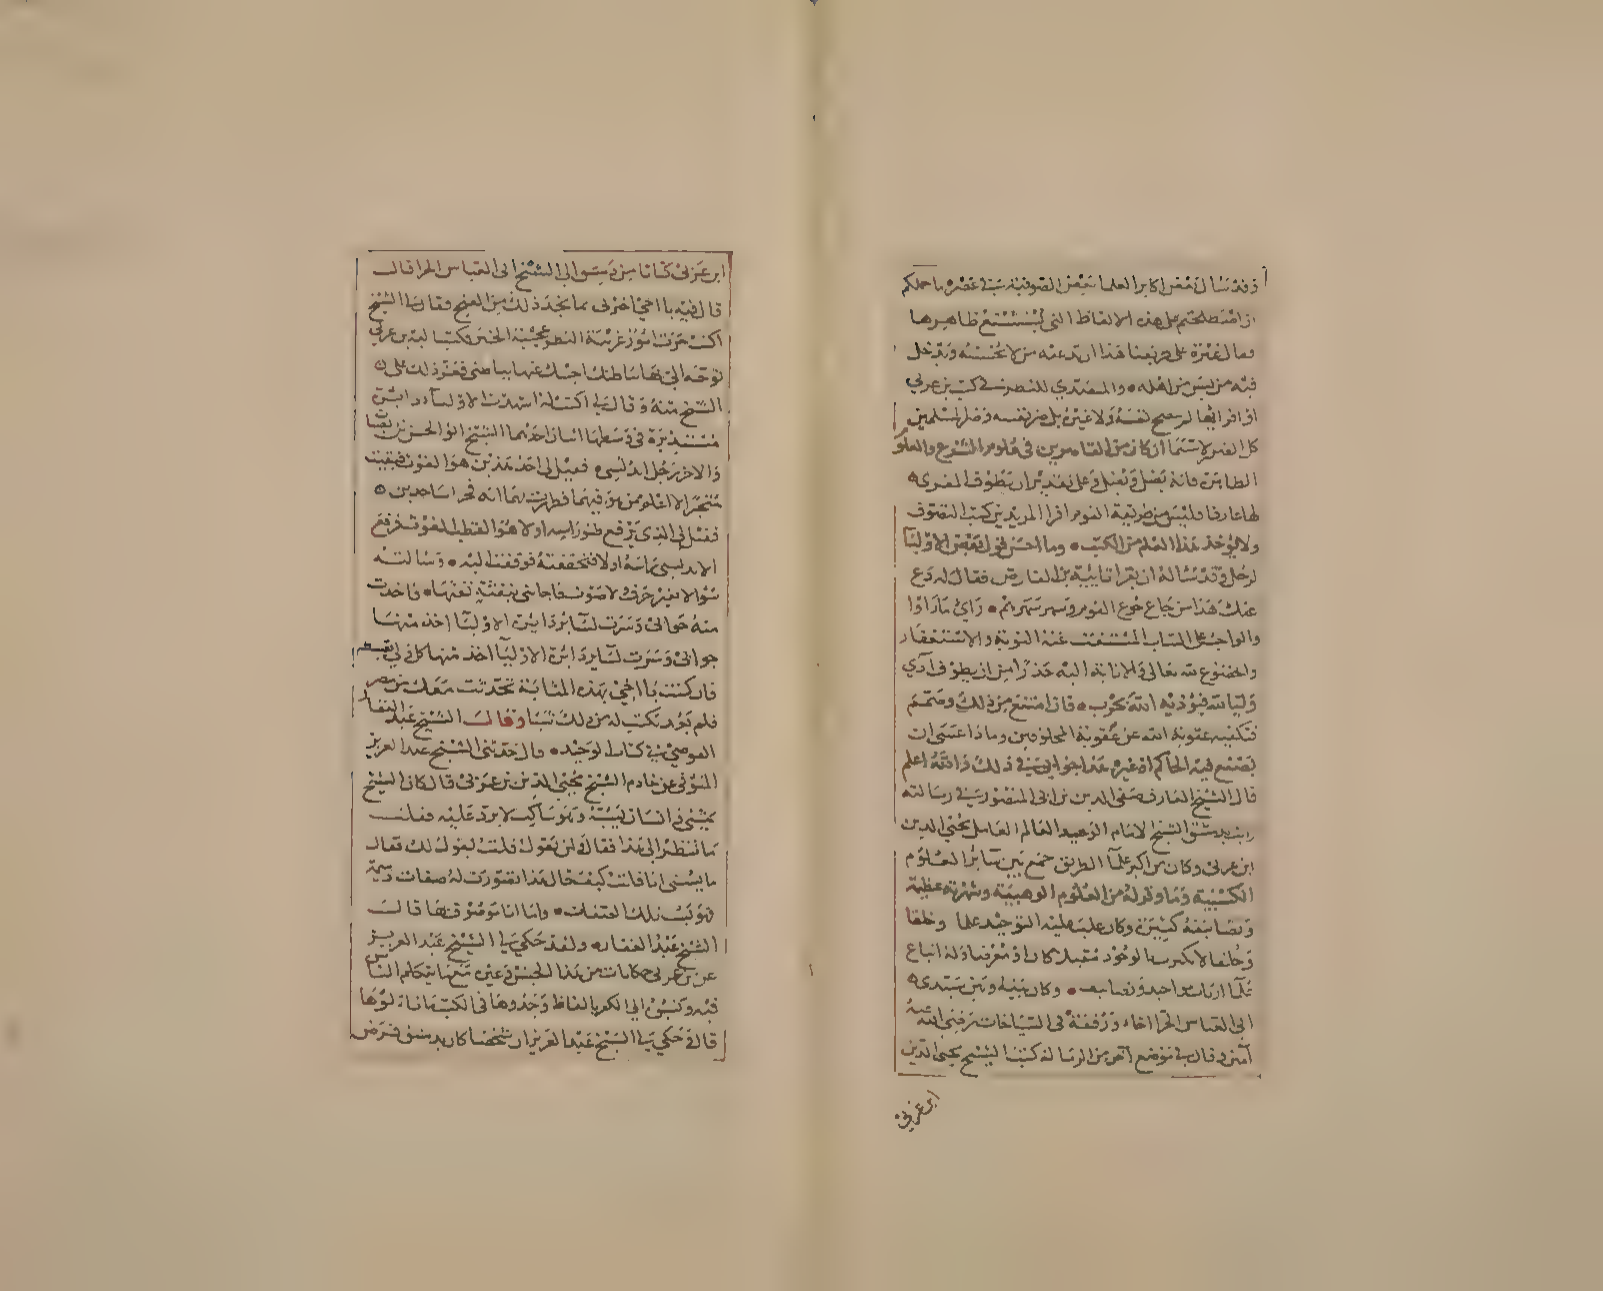 وقد سال بعض اكابر العلما بعض الصوفية في عصره ما حملكم
ان اصطلحتم على هذه الالفاظ التي يستشنع ظاهرها
فقال غيرة على طريقنا هذا ان يدعيه من لا يحسنه ويدخل
فيه من ليس من اهله والمتصدي للنظر في كتب ابن عربي
او اقرائها لم ينصح نفسه ولا غيره بل ضر نفسه وضر المسلمين
كل الضرر لا سيما ان كان من القاصرين في علوم الشرع والعلوم
الظاهرة فانه يضل ويضل وعلى تقدير ان
عارفا فليس من طريقة القوم اقرا المريدين كتب التصوف
ولا يؤخذ هذا العلم من الكتب وما احسن قول بعض الاوليا
لرجل وقد ساله ان يقرا تايية ابن الفارض فقال له دع
عنك هذا من جاع جوع القوم وسهر سهرهم راى ما راوا
والواجب على الشاب المستفتى عنه التوبة والاستغفار
والخضوع لله تعالى والانابة اليه حذرا من ان يكون آذى
وليا لله فيؤذنه الله بحرب فان امتنع من ذلك وصمم
فتكفيه عقوبة الله عن عقوبة المخلوقين وماذا عسى ان
يصنع فيه الحاكم او غيره هذا جوابي في ذلك والله اعلم
قال الشيخ العارف صفي الدين بن ابي المنصور في رسالته
رايت بدمشق الشيخ الامام الوحيد العالم العامل محيي الدين
ابن عربي وكان من اكبر علما الطريق جمع بين ساير العلوم
الكسبية وما وقر له من العلوم الوهبية وشهرته عظيمة
وتصانيفه كثيرة وكان غلب عليه التوحيد علما وخلقا
وحالا لا يكترث بالوجود مقبلا كان او معرضا وله اتباع
علما ارباب مواجيد وتصانيف وكان بينه وبين سيدي
ابي العباس الحرار اخاء ورفقة في السياحات رضي الله عنهما
آمين وقال في موضع آخر من الرسالة كتب الشيخ محيي الدين
ابن عربي
ابن عربي كتابا من دمشق الى الشيخ ابي العباس الحرار قال
قال فيه يا اخي اخبرني بما تجدد لك من الفتح فقال لي الشيخ
اكتب جرت امور غريبة النظر عجيبة الخبر فكتب اليه ابن عربي
توجه الي بها بباطنك اجبك عنها بباطني فعز ذلك على
الشيخ منه وقال لي اكتب له اشهدت الاوليا دائرة
مستديرة في وسطها اثنان احدهما الشيخ ابو الحسن بن
والاخر رجل اندلسي فقيل لي احد هذين هو الغوث فبقيت
متحيرا لا اعلم من هو فيهما فظهرت لهما اية فخرا ساجدين
فقيل لي الذي يرفع راسه اولا هو القطب الغوث فرفع
الاندلسي راسه اولا فتحققته فوقفت اليه وسالته
سؤالا بغير حرف ولا صوت فاجابني بنفثة نفثها فاخذت
منه جوابي وسرت لساير دايرة الاوليا اخذ منها
جوابي وسرت لساير دايرة الاوليا اخذ منها كل ولي
فان كنت يا اخي بهذه المثابة تحدثت معك من مصر
فلم يعد يكتب له من ذلك شيئا وقال الشيخ عبد الغفار
القوصي في كتاب الوحيد قال حدثني الشيخ عبد العزيز
المنوفي عن خادم الشيخ محيي الدين بن عربي قال كان الشيخ
يمشي وانسان يسبه وهو ساكت لا يرد عليه فقلت
ما تنظر الى هذا فقال ولمن يقول قلت يقول لك فقال
ما يسبني انا قلت كيف قال هذا تصورت له صفات ذميمة
فهو يسب تلك الصفات وما انا موصوف بها قال
الشيخ عبد الغفار ولقد حكى لي الشيخ عبد العزيز
عن ابن عربي حكايات من هذا الجنس وغير مما يتكلم الناس
فيه ونسبوه الى الكفر بالفاظ وجدوها في الكتب ما تاولوها
قال وحكى لي الشيخ عبد العزيز ان شخصا كان بدمشق فرض